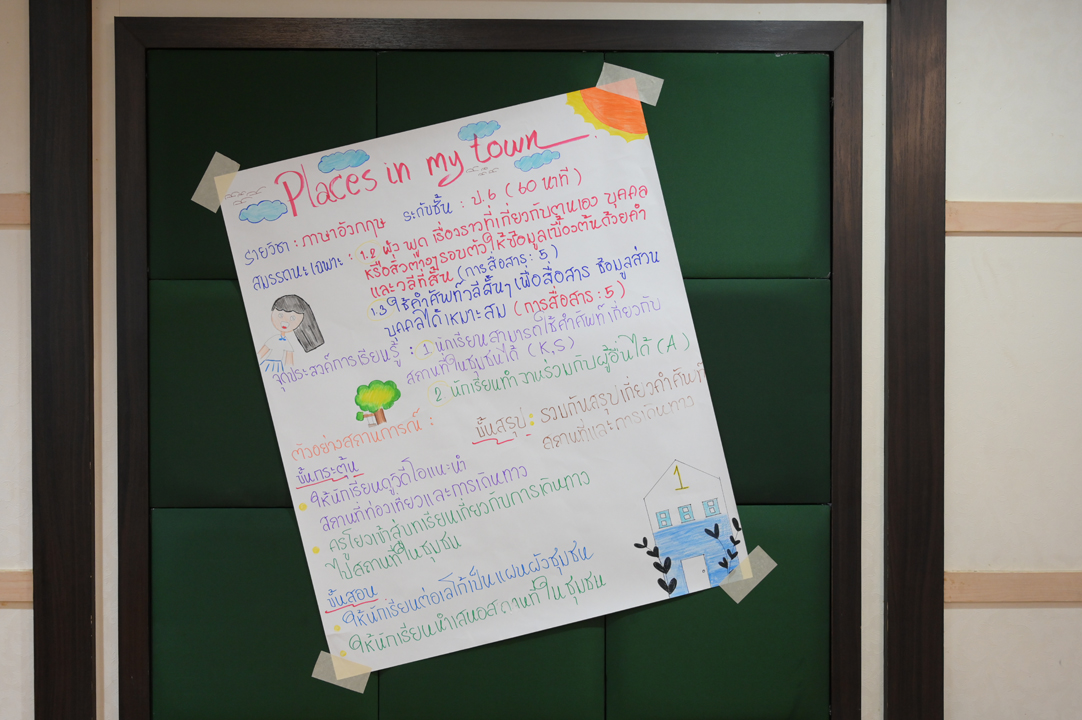 Places in my town
รายวิชา : ภาษาอังกฤษ ระดับชั้น : ป.6 (60 นาที)
สมรรถนะเฉพาะ : 1.2 ฟัง พูด เรื่องราวที่เกี่ยวกับตนเอง บุคคล
หรือสิ่งต่างๆรอบตัวให้ข้อมูลเบื้องต้นด้วยคำ
และวลีที่สั้น (การสื่อสาร : 5)
1.3 ใช้คำศัพท์วลีสั้นๆ เพื่อสื่อสาร ข้อมูลส่วน
บุคคลได้เหมาะสม (การสื่อสาร : 5)
จุดประสงค์การเรียนรู้ : 1 นักเรียนสามารถใช้คำศัพท์เกี่ยวกับ
สถานที่ในชุมชนได้ (K,S)
2 นักเรียนทำงานร่วมกับผู้อื่นได้ (A)
ตัวอย่างสถานการณ์ :
ขั้นกระตุ้น
ให้นักเรียนดูวิดีโอแนะนำ
สถานที่ท่องเที่ยวและการเดินทาง
ครูโยงเข้าสู่บทเรียนเกี่ยวกับการเดินทาง
ไปสถานที่ในชุมชน
ขั้นสอน
ให้นักเรียนต่อเลโก้เป็นแผนผังชุมชน
ให้นักเรียนนำเสนอสถานที่ในชุมชน
ขั้นสรุป : รวมกันสรุปเกี่ยวคำศัพท์
สถานที่และการเดินทาง
1